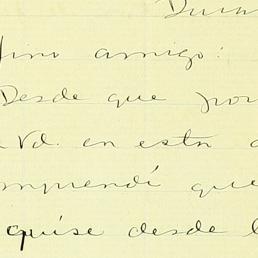 Dura
mo amigo:
Desde que por
a Vd. en esta c
omprendí que
quise desde l